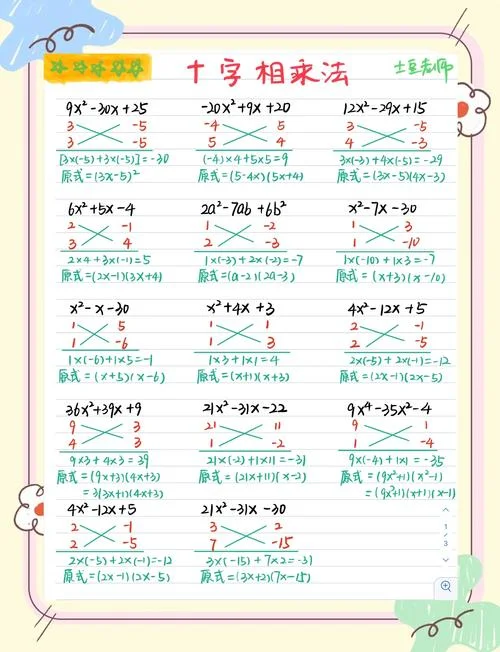 十字相乘法
土豆老师
9x²-30x+25
3 -5
3 -5
[3×(-5)+3×(-5)]=-30
原式=(3x-5)²
-20x²+9x+20
-4 5
5 4
(-4)×4+5×5=9
原式=(5-4x)(5x+4)
12x²-29x+15
3 -5
4 -3
3×(-3)+4×(-5)=-29
原式=(3x-5)(4x-3)
6x²+5x-4
2 -1
3 4
2×4+3×(-1)=5
原式=(2x-1)(3x+4)
2a²-7ab+6b²
1 -2
2 -3
1×(-3)+2×(-2)=-7
原式=(a-2)(2a-3)
x²-7x-30
1 3
1 -10
1×(-10)+1×3=-7
原式=(x+3)(x-10)
x²-x-30
1 5
1 -6
1×(-6)+1×5=-1
原式=(x+5)(x-6)
x²+4x+3
1 1
1 3
1×3+1×1=4
原式=(x+1)(x+3)
4x²-12x+5
2 -1
2 -5
2×(-5)+2×(-1)=-12
原式=(2x-1)(2x-5)
36x²+39x+9
9 3
4 3
9×3+4×3=39
原式=(9x+3)(4x+3)
=3(3x+1)(4x+3)
21x²-31x-22
21 11
1 -2
21×(-2)+1×11=-31
原式=(21x+11)(x-2)
9x⁴-35x²-4
9 1
1 -4
9×(-4)+1×1=-35
原式=(9x²+1)(x²-1)
=(9x²+1)(x+1)(x-1)
4x²-12x+5
2 -1
2 -5
2×(-5)+2×(-1)=-12
原式=(2x-1)(2x-5)
21x²-31x-30
3 2
7 -15
3×(-15)+7×2=-31
原式=(3x+2)(7x-15)
1
/
3